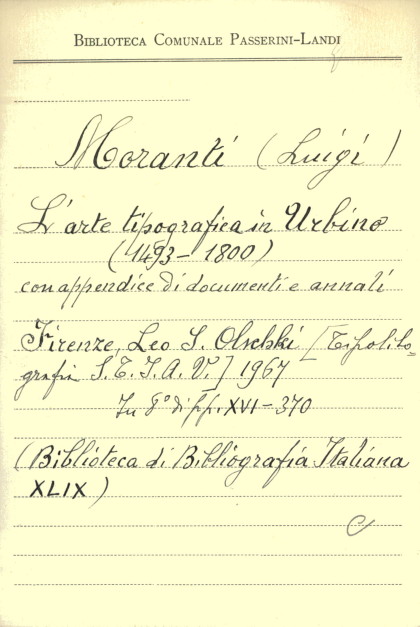 BIBLIOTECA COMUNALE PASSERINI-LANDI
Moranti (Luigi)
L'arte tipografica in Urbino
(1493-1800)
con appendice di documenti e annali
Firenze, Leo S. Olschki [Tipolito=
grafia S.T.I.A.V.] 1967
In 8° di pp. XVI-370
(Biblioteca di Bibliografia Italiana
XLIX)
C